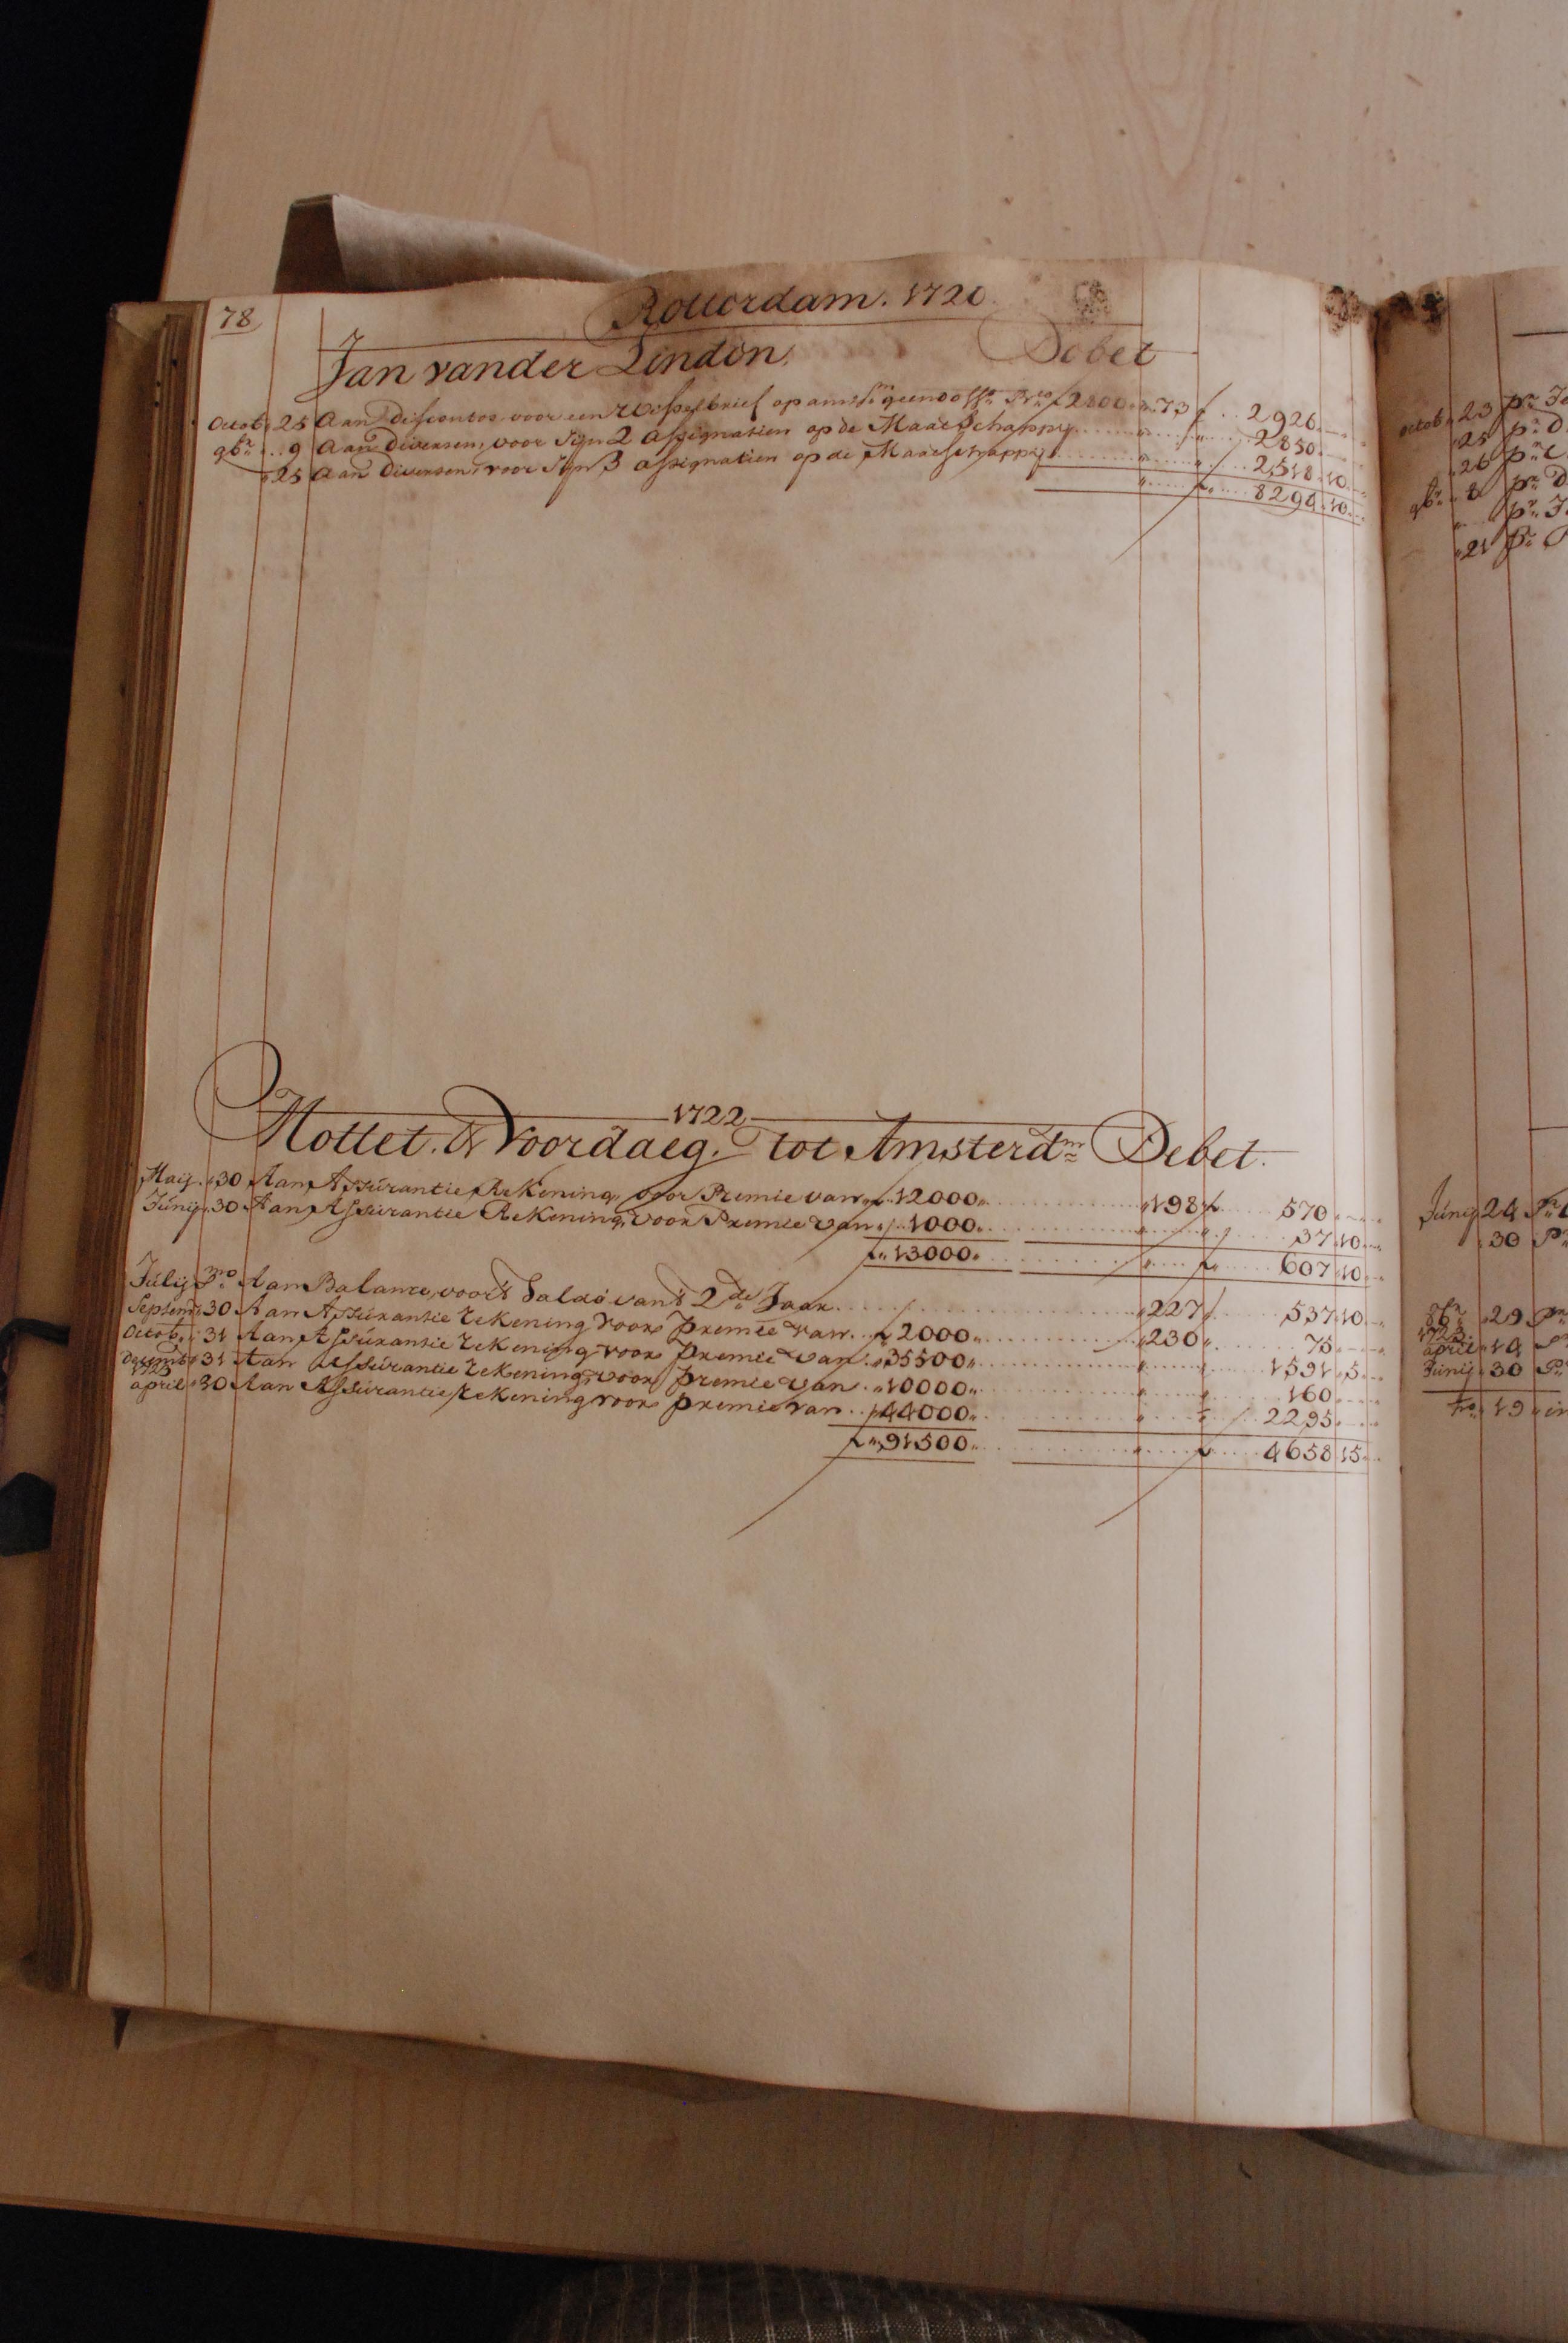 78
Rotterdam. 1720
Jan vander Linden. Debet
Octob. 25 Aan Disconto voor een Wisselbrief op amst. 2800 73 f 2926
9br. 9 Aan Diversen, voor zijn 2 assignatien op de Maatschappy 2850
25 Aan Diversen, voor zijn 3 assignatien op de Maatschappy 2518.10
8294.10
1722
Mottet. & Voordaeg. tot Amsterdm. Debet.
Maij. 30 Aan Assúrantie Rekening, voor Premie van f 12000 198 f 570
Júnij. 30 Aan Assúrantie Rekening, voor Premie van 1000 37.10
f 13000 f 607.10
Júlij pmo. Aan Balance, voor't Saldo van't 2de. Jaar 227 f 537.10
Septem. 30 Aan Assúrantie rekening voor premie van f 2000 230 75
Octob. 31 Aan Assúrantie rekening voor premie van 35500 1591.5
decemb. 31 Aan Assúrantie rekening, voor premie van 10000 160
1723
april 30 Aan Assúrantie rekening voor premie van 44000 2295
f 91500 f 4658.15
octob. 23 pr. Ja
25 pr. D
26 pr.
9br. 8 pr. D
pr. J
21 pr.
Júnij 24 Pr
30 Pr
29 Pr
1723
april 14 P
Júnij 30 Pr
19 in